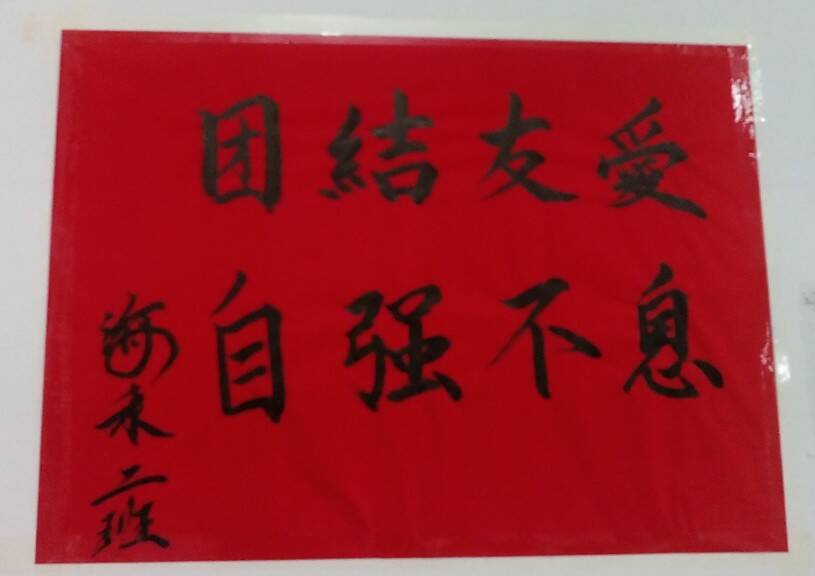 团結友愛
自强不息
二班